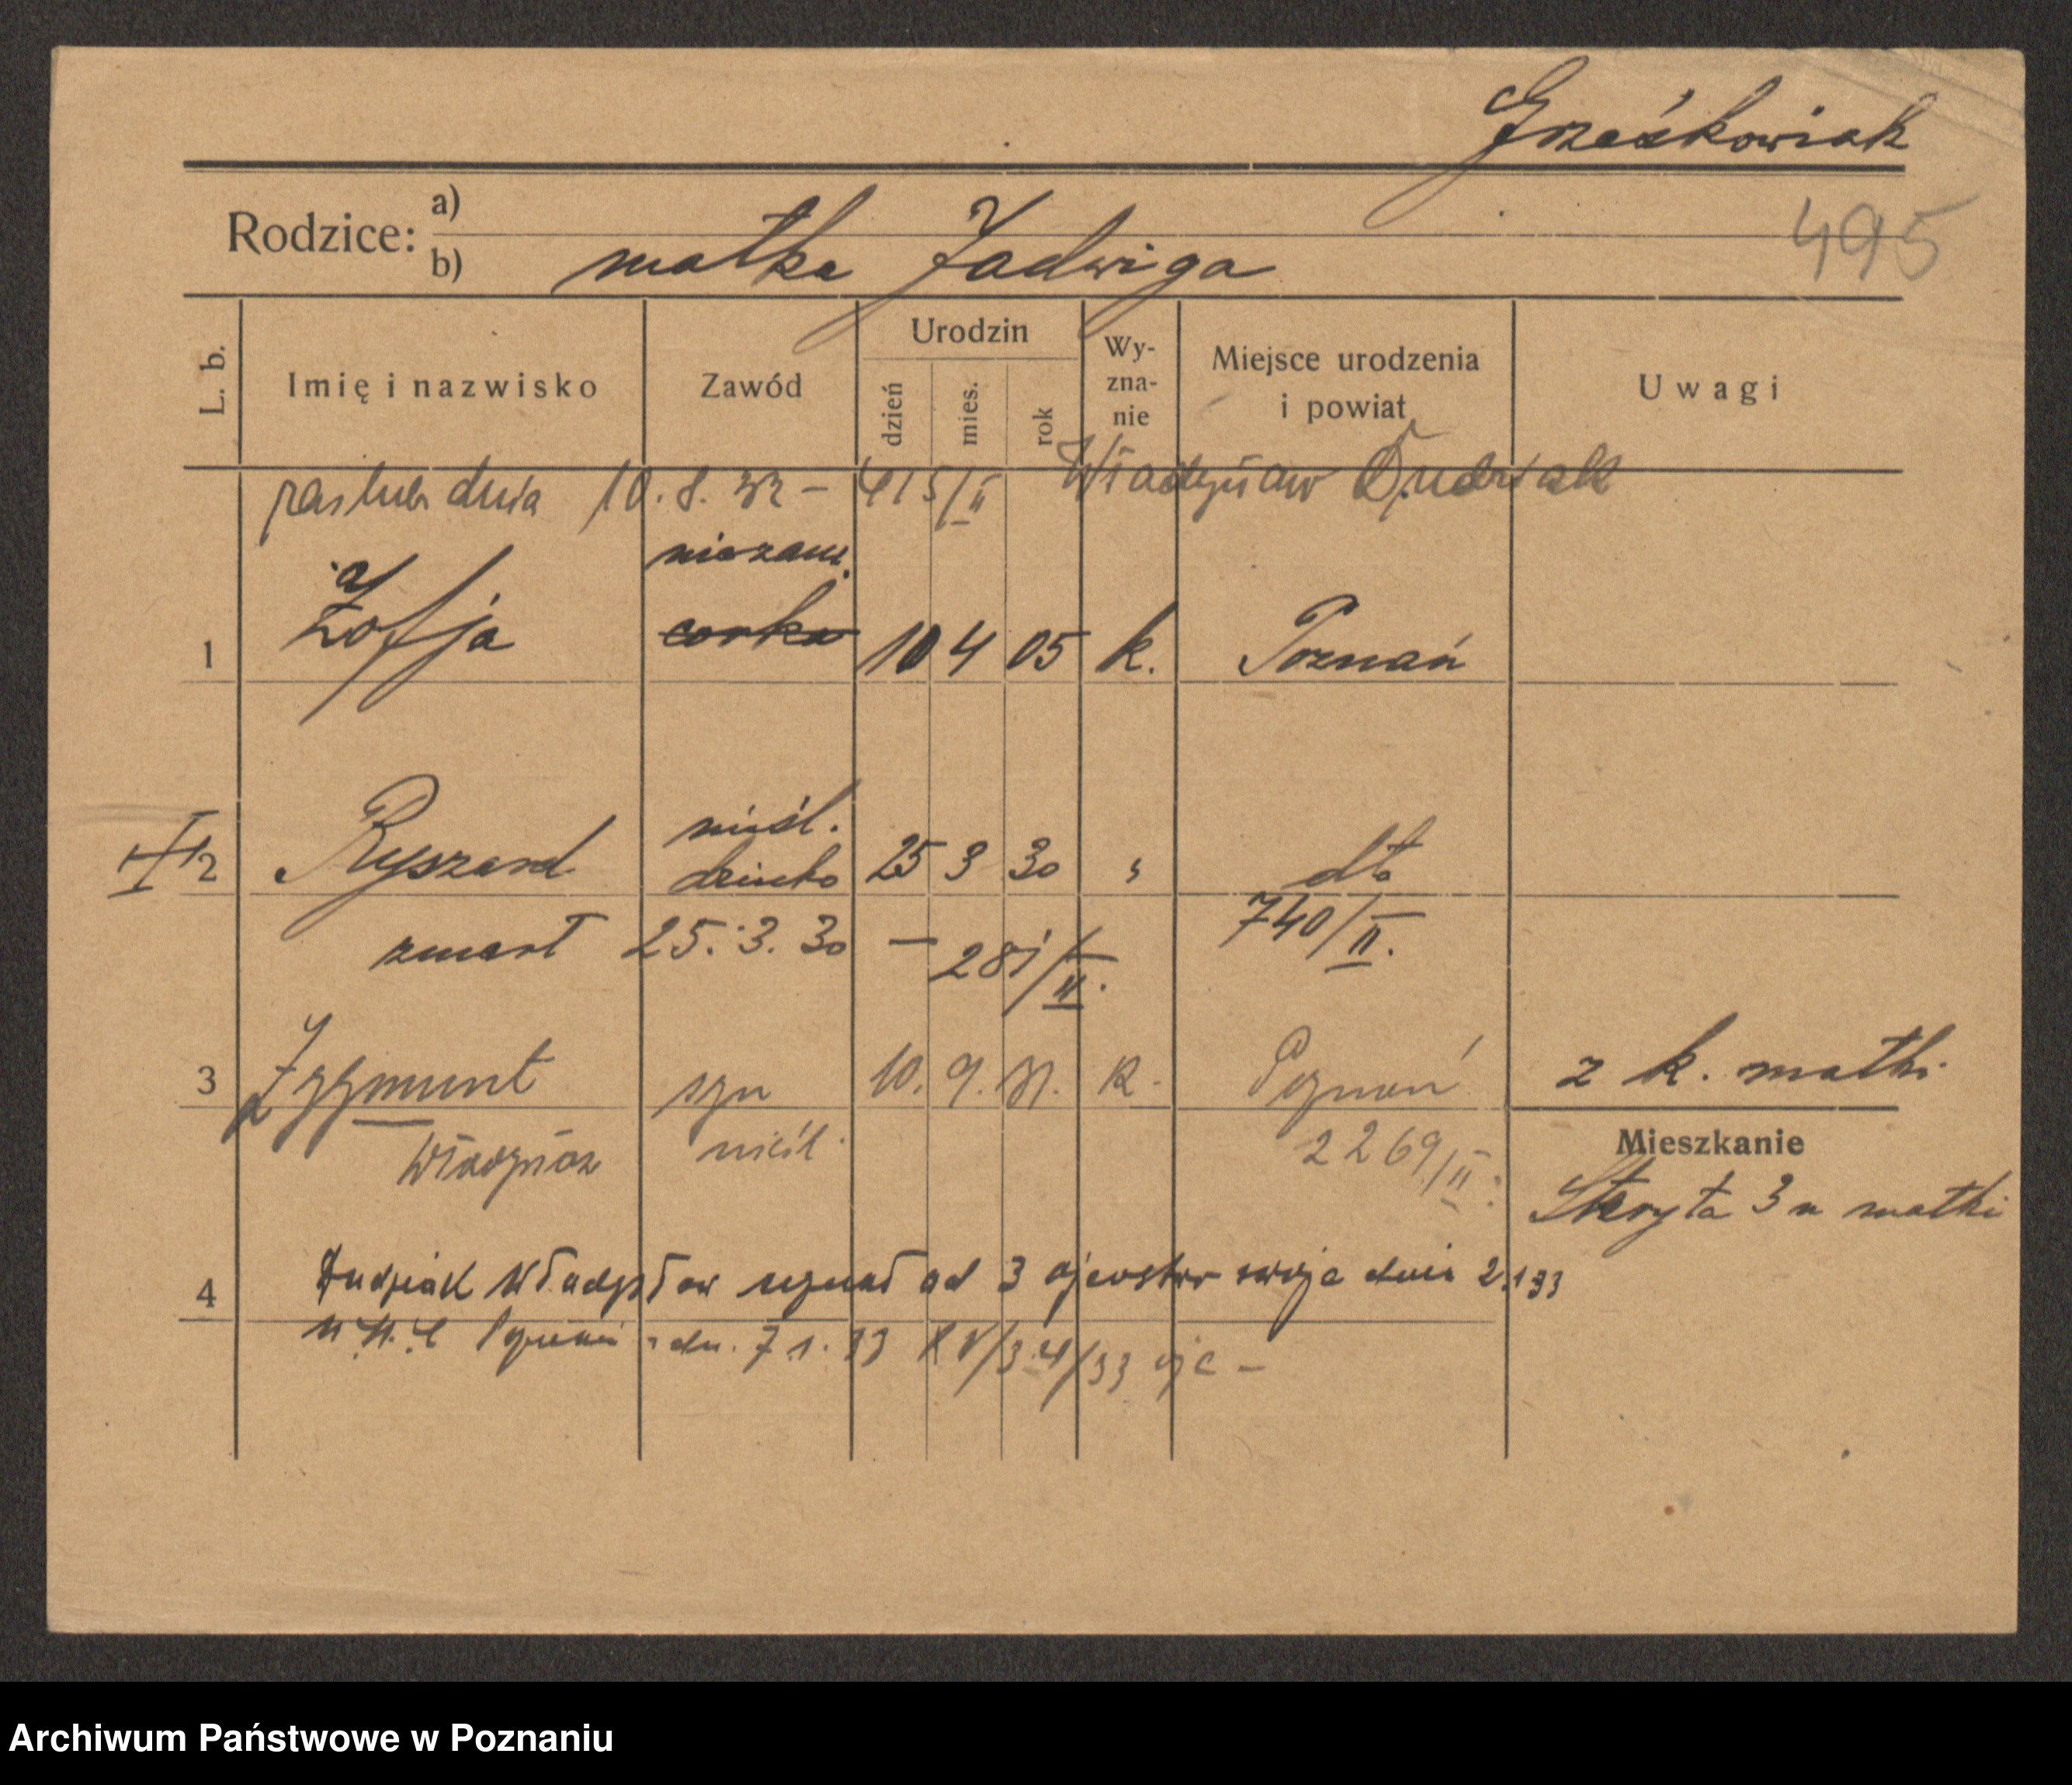 Grześkowiak
Rodzice: a)
b) matka Jadwiga
495
L. b. Imię i nazwisko Zawód Urodzin dzień mies. rok Wy-zna-nie Miejsce urodzenia i powiat Uwagi
zaślub dnia 10. 8. 32 – 415/II Władysław Dudziak
niezam.
1 Zofja corka 10 4 05 k. Poznań
nieśl.
2 Ryszard dziecko 25 3 30 " dto
740/II.
zmarł 25. 3. 30 – 281/II.
3 Zygmunt syn 10. 9. 31. k. Poznań z k. matki
Władysław nieśl. 2269/II.
Mieszkanie
Skryta 3 u matki
4 Dudziak Władysław uznał ad 3 ojcostwo swoje dnia 2.1.33
Poznań z dn. 7.1.33
Archiwum Państwowe w Poznaniu